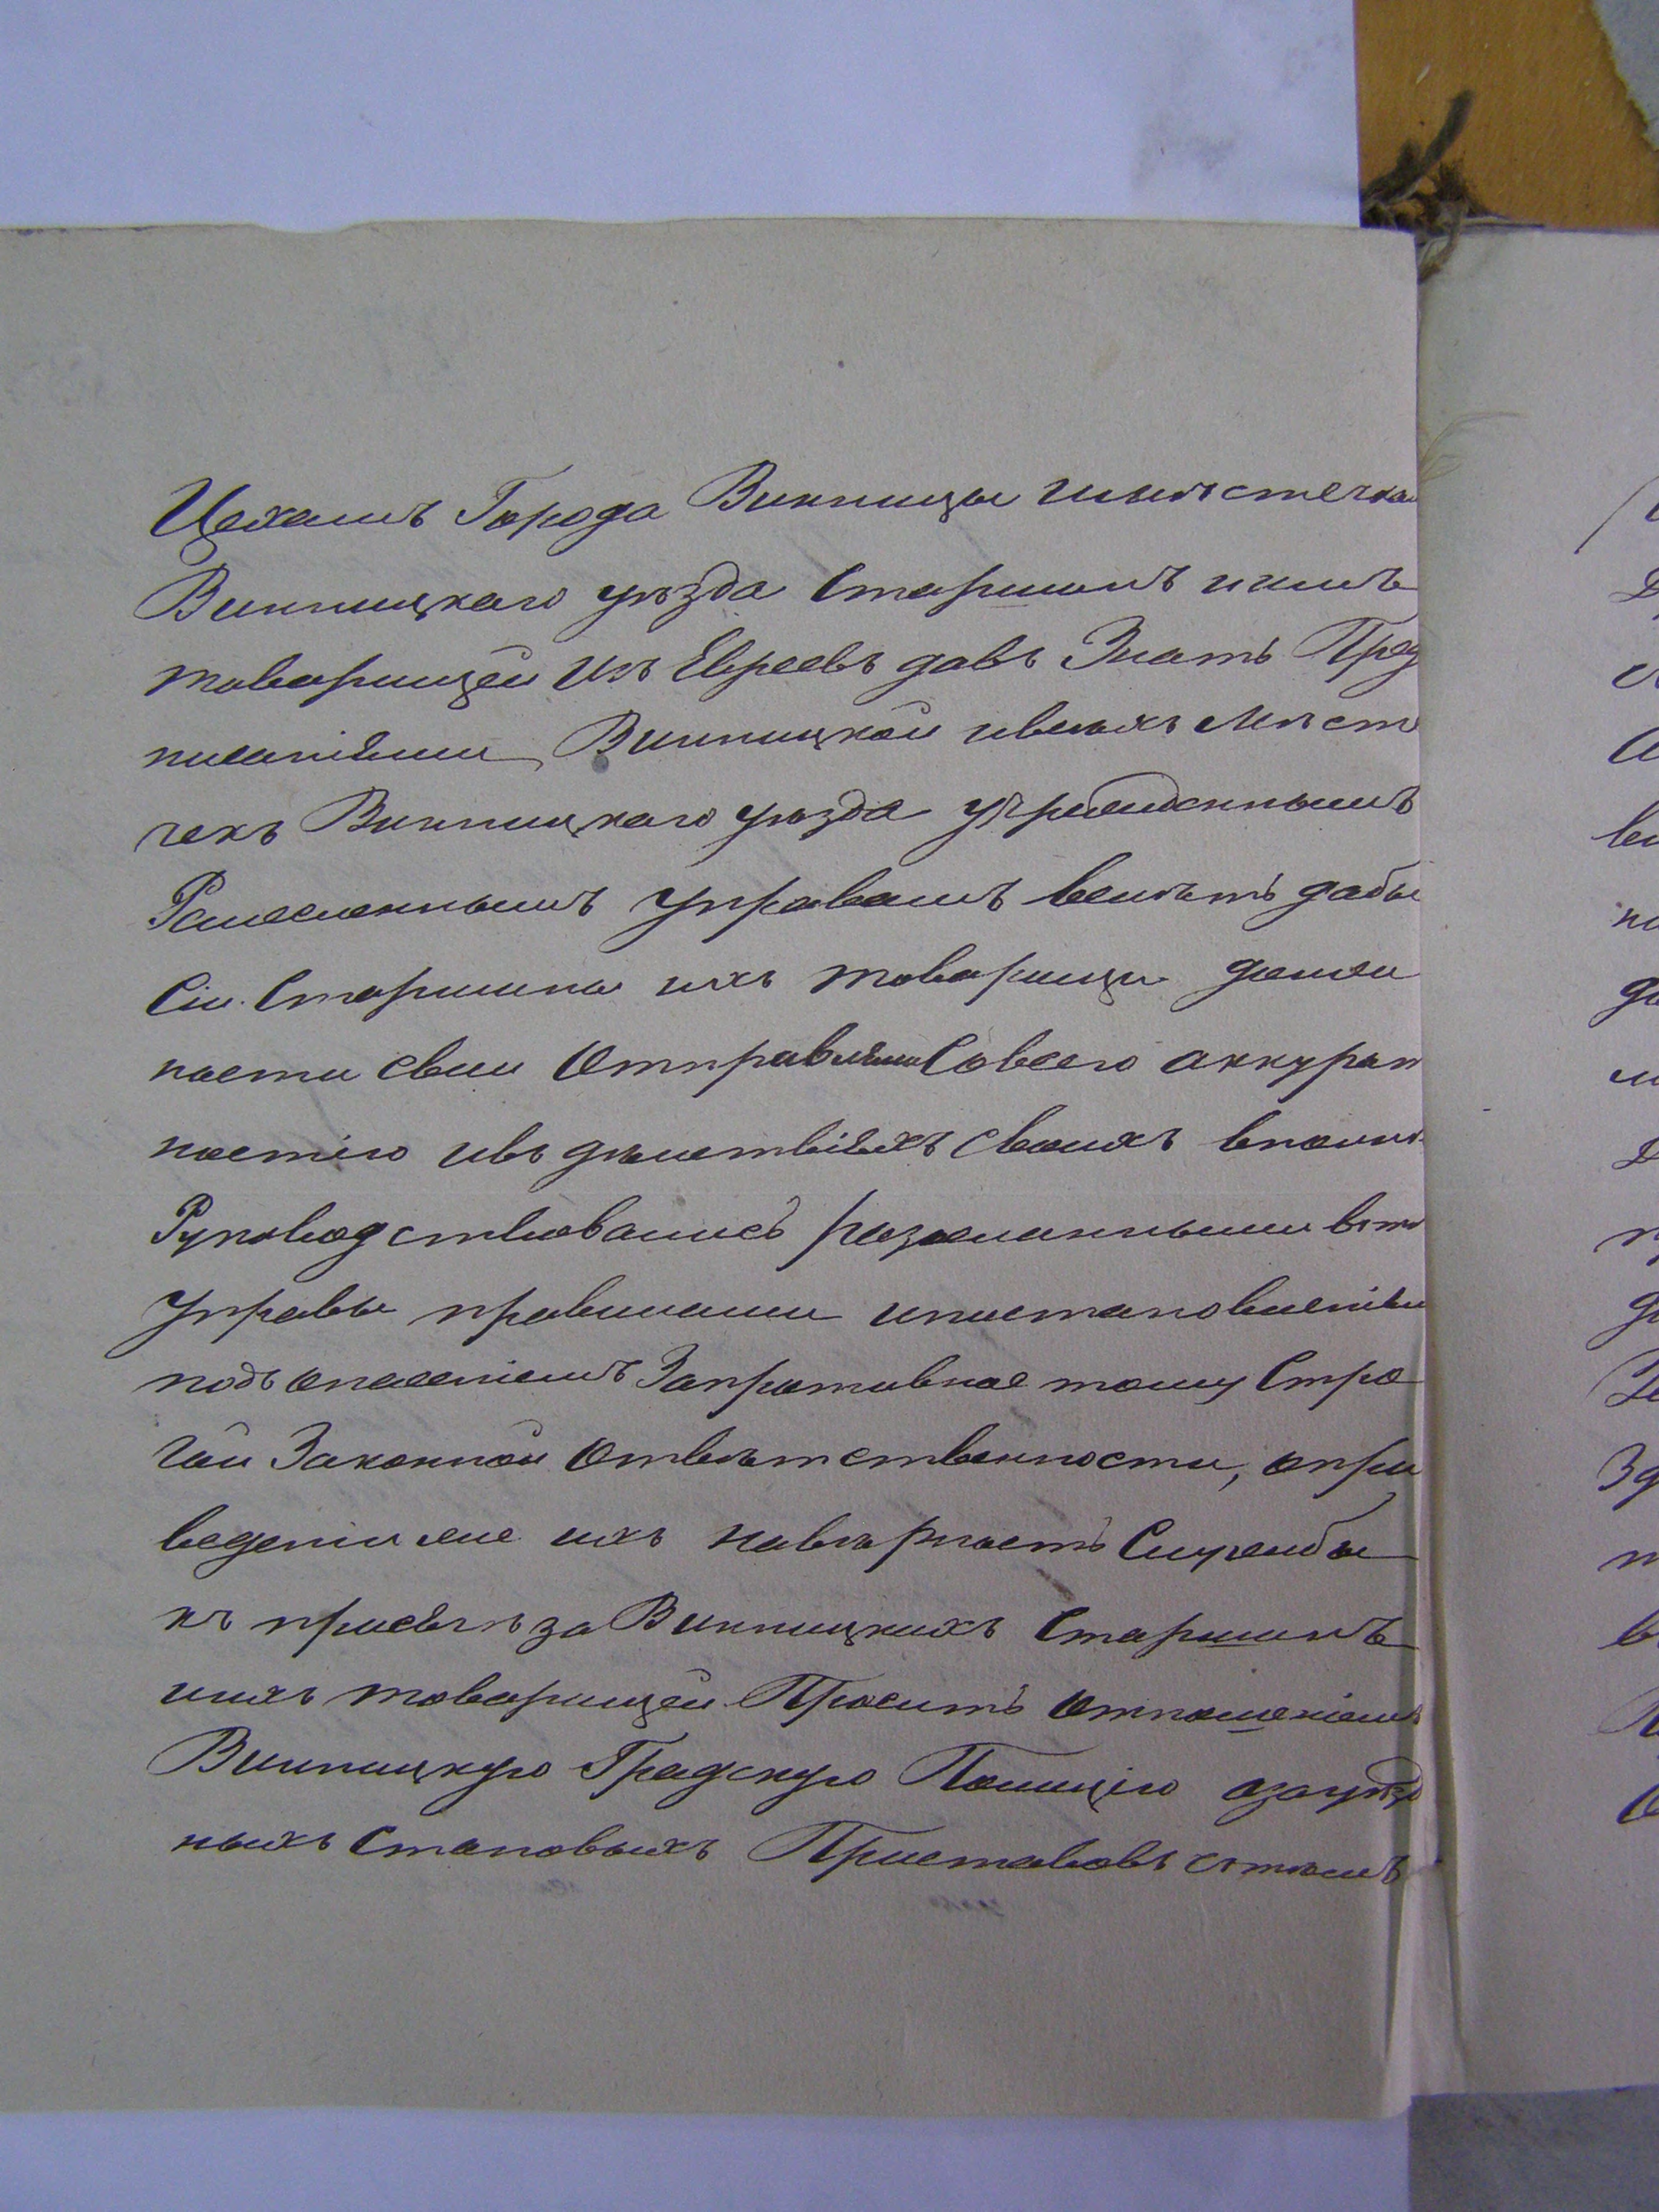 Цехамъ Города Винницы имѣстечка
Винницкаго уѣзда Старшинъ иимъ
товарищей Изъ Евреевъ давъ Знать Пред
писаніями Винницкой ивсѣхъ Мѣсте
чекъ Винницкаго уѣзда учрежденнымъ
Ремесленнымъ Управамъ велѣть дабы
Сіи Старшины ихъ товарищи долж
ности свои Отправляли Совсею аккурат
ностію ивъ дѣйствіяхъ своихъ вполнѣ
Руководствовались разосланными вѣтѣ
Управы правилами ипостановленіями
подъ опасеніемъ Запротивное тому Стро
гой Законной Отвѣтственности, опри
веденіи же ихъ навѣрность Службы
къ присягѣ за Винницкихъ Старшинъ
иихъ товарищей Просить Отношеніемъ
Винницкую Градскую Полицію азауѣзд
ныхъ Становыхъ Приставовъ стѣмъ